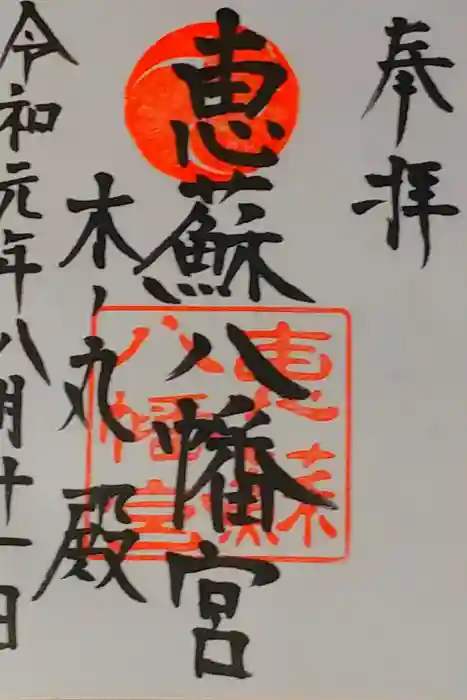 奉拝
恵蘇八幡宮
恵蘇
八幡宮
木ノ丸殿
令和元年八月十一日